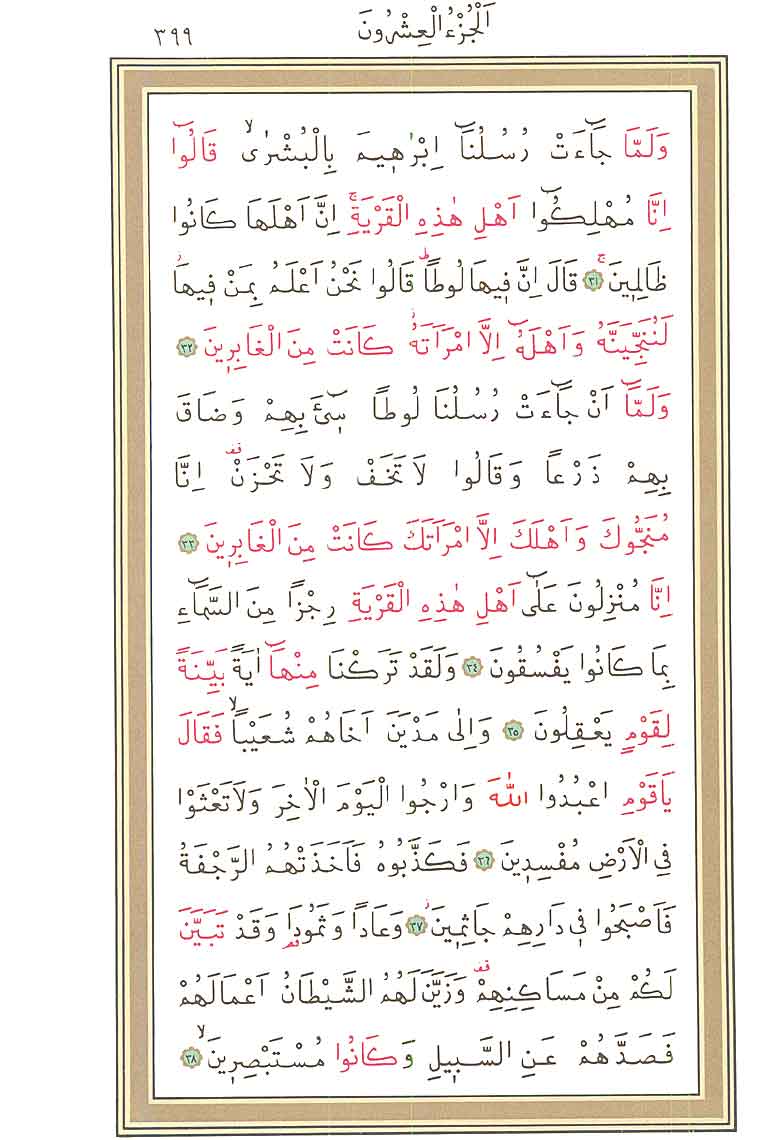 اَلْجُزْءُ الْعِشْرُونَ
٣٩٩
وَلَمَّا جَٓاءَتْ رُسُلُنَٓا اِبْرٰه۪يمَ بِالْبُشْرٰىۙ قَالُٓوا
اِنَّا مُهْلِكُٓوا اَهْلِ هٰذِهِ الْقَرْيَةِۚ اِنَّ اَهْلَهَا كَانُوا
ظَالِم۪ينَۚ ﴿٣١﴾ قَالَ اِنَّ ف۪يهَا لُوطًاۜ قَالُوا نَحْنُ اَعْلَمُ بِمَنْ ف۪يهَاۘ
لَنُنَجِّيَنَّهُ وَاَهْلَهُٓ اِلَّا امْرَاَتَهُۘ كَانَتْ مِنَ الْغَابِر۪ينَ ﴿٣٢﴾
وَلَمَّٓا اَنْ جَٓاءَتْ رُسُلُنَا لُوطًا س۪ٓيءَ بِهِمْ وَضَاقَ
بِهِمْ ذَرْعًا وَقَالُوا لَا تَخَفْ وَلَا تَحْزَنْ۠ اِنَّا
مُنَجُّوكَ وَاَهْلَكَ اِلَّا امْرَاَتَكَ كَانَتْ مِنَ الْغَابِر۪ينَ ﴿٣٣﴾
اِنَّا مُنْزِلُونَ عَلٰٓى اَهْلِ هٰذِهِ الْقَرْيَةِ رِجْزًا مِنَ السَّمَٓاءِ
بِمَا كَانُوا يَفْسُقُونَ ﴿٣٤﴾ وَلَقَدْ تَرَكْنَا مِنْهَٓا اٰيَةً بَيِّنَةً
لِقَوْمٍ يَعْقِلُونَ ﴿٣٥﴾ وَاِلٰى مَدْيَنَ اَخَاهُمْ شُعَيْبًاۙ فَقَالَ
يَاقَوْمِ اعْبُدُوا اللّٰهَ وَارْجُوا الْيَوْمَ الْاٰخِرَ وَلَا تَعْثَوْا
فِي الْاَرْضِ مُفْسِد۪ينَ ﴿٣٦﴾ فَكَذَّبُوهُ فَاَخَذَتْهُمُ الرَّجْفَةُ
فَاَصْبَحُوا ف۪ي دَارِهِمْ جَاثِم۪ينَۘ ﴿٣٧﴾ وَعَادًا وَثَمُودَا۬ وَقَدْ تَبَيَّنَ
لَكُمْ مِنْ مَسَاكِنِهِمْ۠ وَزَيَّنَ لَهُمُ الشَّيْطَانُ اَعْمَالَهُمْ
فَصَدَّهُمْ عَنِ السَّب۪يلِ وَكَانُوا مُسْتَبْصِر۪ينَۙ ﴿٣٨﴾